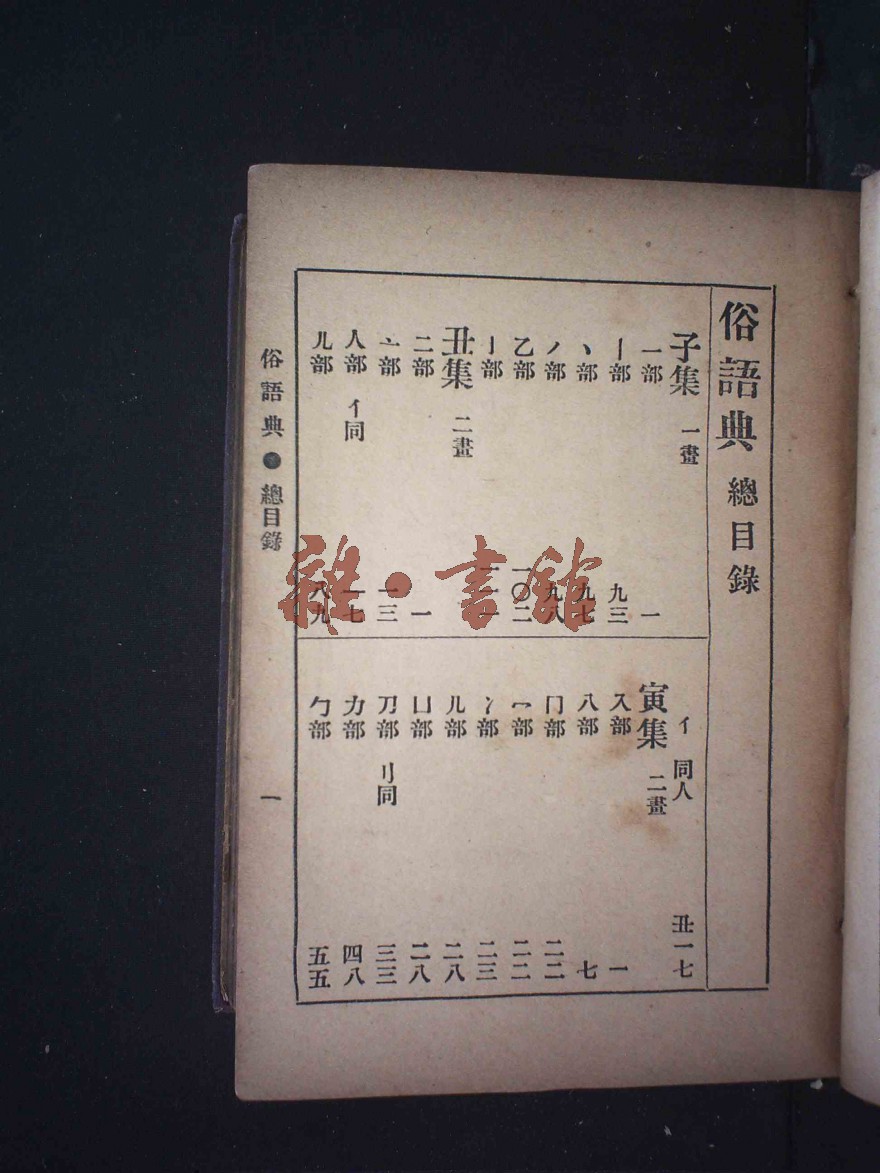 俗語典 總目錄
子集 一畫
一部 一
丨部 九三
丶部 九七
丿部 九八
乙部 一〇二
亅部 一一一
丑集 二畫
二部 一
亠部 一三
人部 亻同 一七
儿部 八九
亻 同人 丑一七
寅集 二畫
入部 一
八部 七
冂部 二二
冖部 二二
冫部 二三
几部 二八
凵部 二八
刀部 刂同 三三
力部 四八
勹部 五五
俗語典●總目錄 一
雜·書館